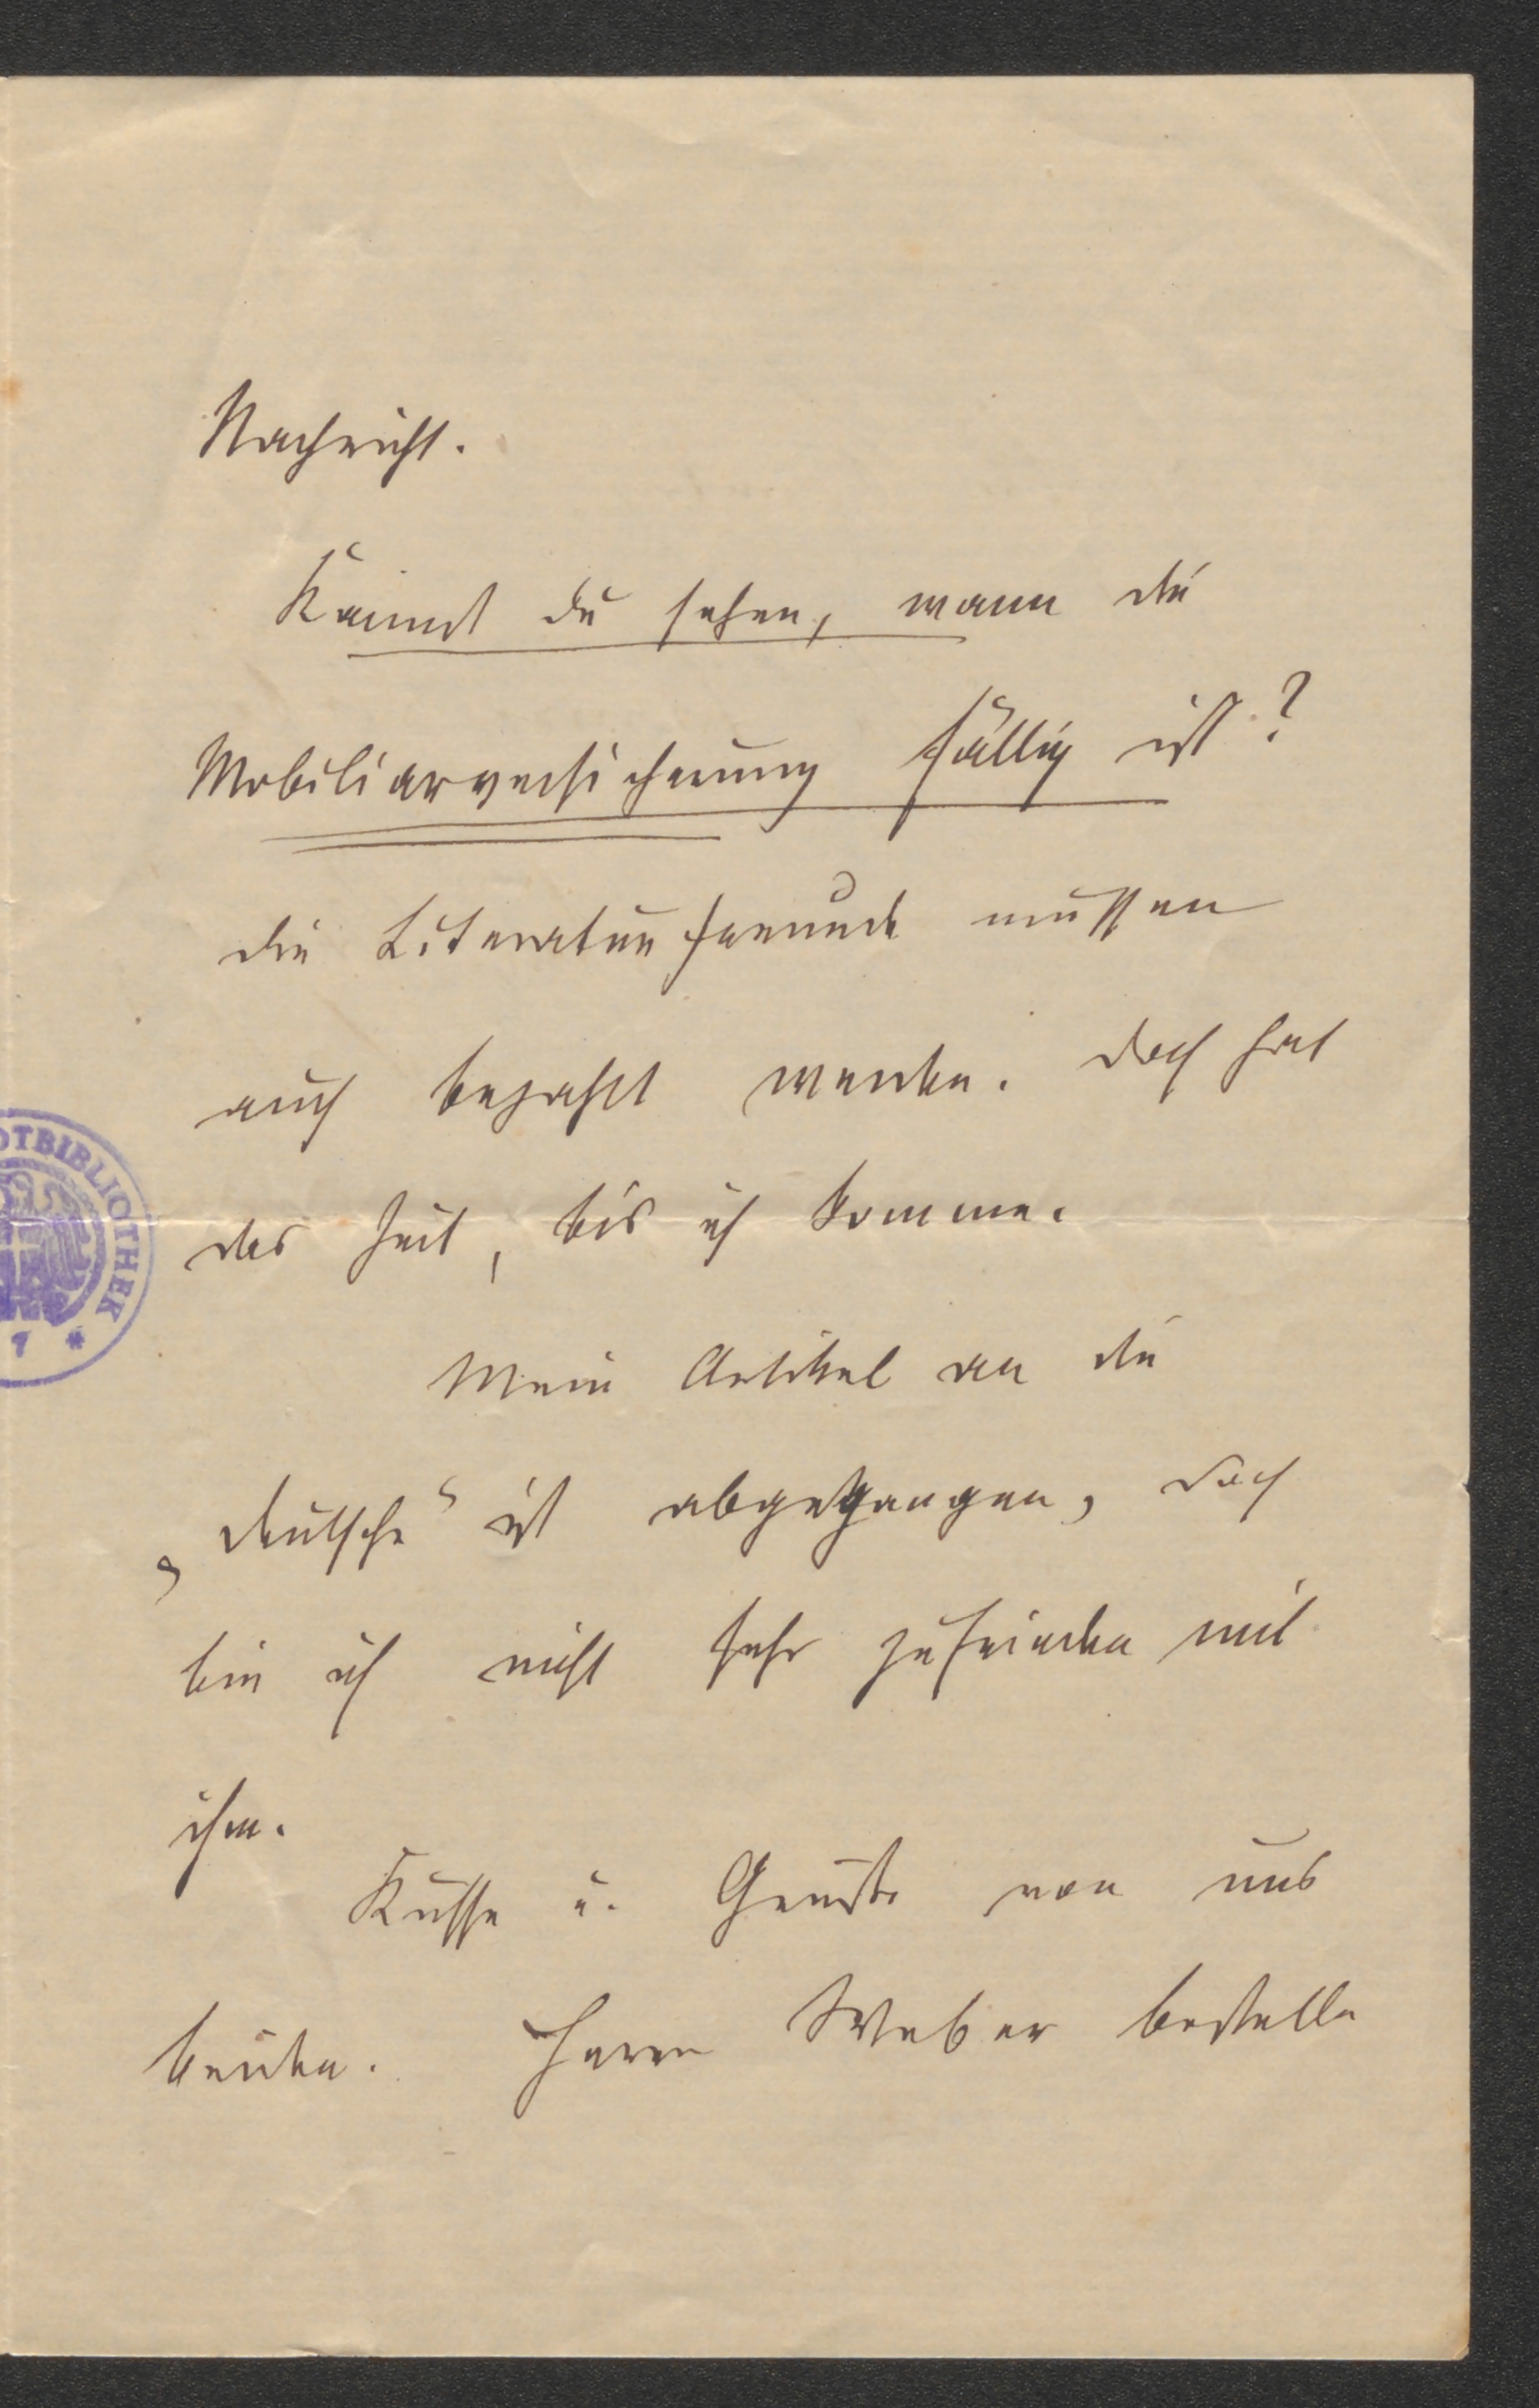 Nachricht.
Kannst du sehen, wann die
Mobiliarversicherung fällig ist?
die Literaturfreunde müssen
auch bezahlt werden. doch hat
das Zeit, bis ich komme.
Mein Artikel an die
„deutsche“ ist abgegangen, doch
bin ich nicht sehr zufrieden mit
ihm.
Küsse u. Grüße von uns
beiden. Herrn Weber bestelle
OTBIBLIOTHEK
7 *